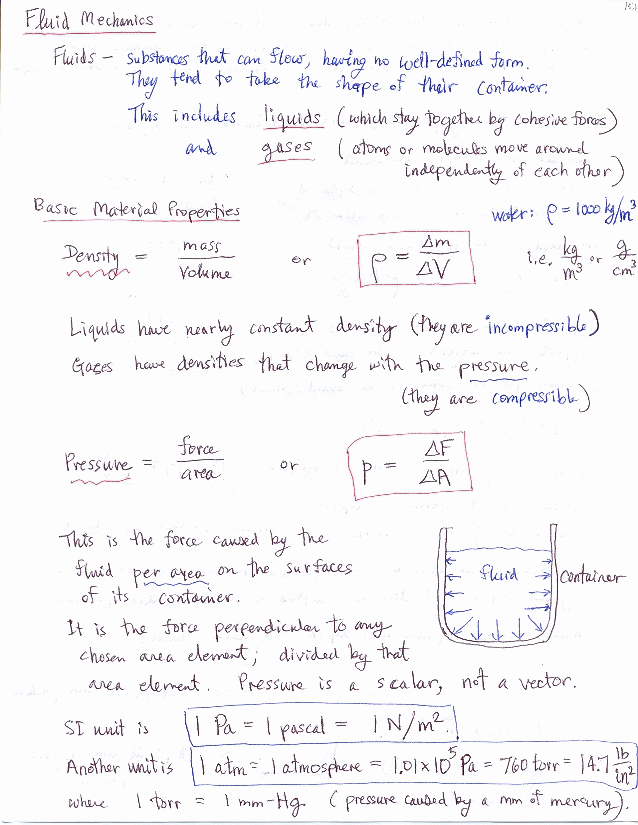 Fluid Mechanics
Fluids – substances that can flow, having no well-defined form.
They tend to take the shape of their container.
This includes liquids (which stay together by cohesive forces)
and gases (atoms or molecules move around
independently of each other)
Basic Material Properties
water: ρ = 1000 kg/m³
Density = mass/volume or ρ = Δm/ΔV i.e. kg/m³ or g/cm³
Liquids have nearly constant density (they are incompressible)
Gases have densities that change with the pressure.
(they are compressible)
Pressure = force/area or p = ΔF/ΔA
This is the force caused by the
fluid per area on the surfaces
of its container.
fluid
container
It is the force perpendicular to any
chosen area element, divided by that
area element. Pressure is a scalar, not a vector.
SI unit is 1 Pa = 1 pascal = 1 N/m².
Another unit is 1 atm = 1 atmosphere = 1.01×10⁵ Pa = 760 torr = 14.7 lb/in²
where 1 torr = 1 mm-Hg. (pressure caused by a mm of mercury).